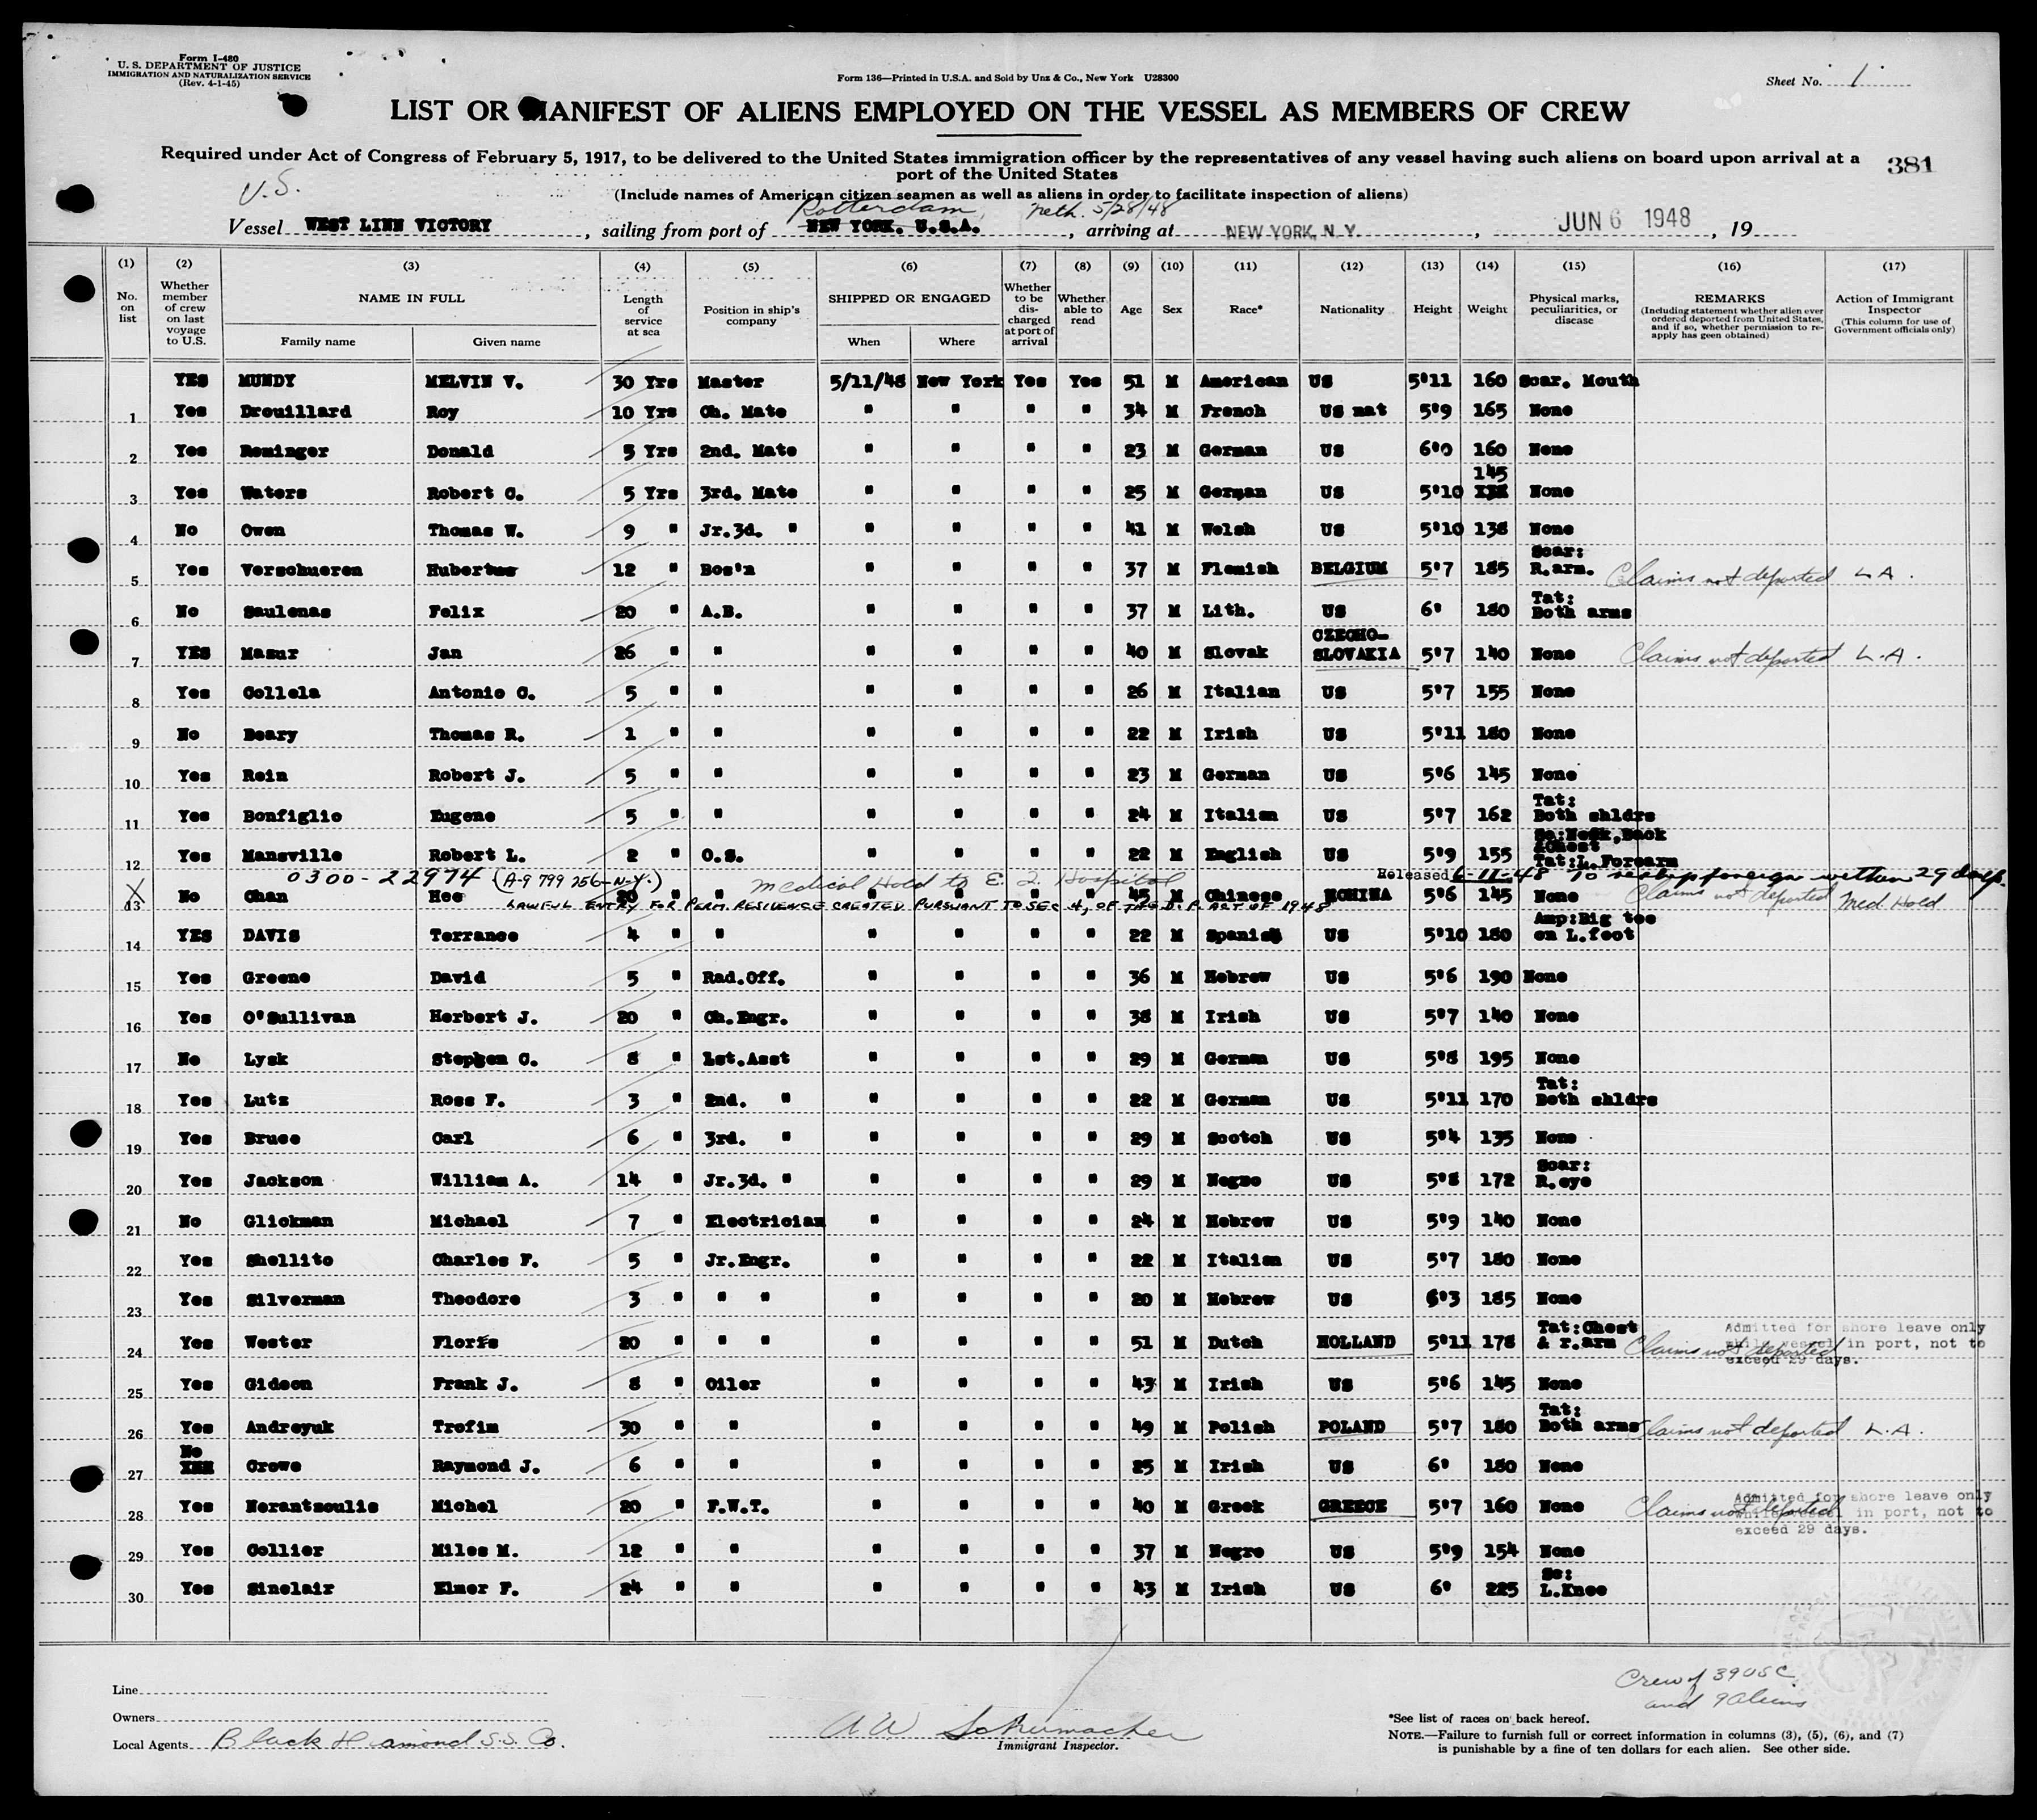 Form I-480
U. S. DEPARTMENT OF JUSTICE
IMMIGRATION AND NATURALIZATION SERVICE
(Rev. 4-1-45)
Form 136—Printed in U.S.A. and Sold by Unz & Co., New York U28300
Sheet No. 1
LIST OR MANIFEST OF ALIENS EMPLOYED ON THE VESSEL AS MEMBERS OF CREW
Required under Act of Congress of February 5, 1917, to be delivered to the United States immigration officer by the representatives of any vessel having such aliens on board upon arrival at a
port of the United States
381
U.S.
(Include names of American citizen seamen as well as aliens in order to facilitate inspection of aliens)
Rotterdam, Neth. 5/28/48
Vessel WEST LINN VICTORY, sailing from port of NEW YORK. U.S.A., arriving at NEW YORK, N. Y., JUN 6 1948, 19
(1) (2) (3) (4) (5) (6) (7) (8) (9) (10) (11) (12) (13) (14) (15) (16) (17)
No. on list
Whether member of crew on last voyage to U.S.
NAME IN FULL
Family name Given name
Length of service at sea
Position in ship's company
SHIPPED OR ENGAGED
When Where
Whether to be discharged at port of arrival
Whether able to read
Age Sex Race* Nationality Height Weight
Physical marks, peculiarities, or disease
REMARKS
(Including statement whether alien ever ordered deported from United States, and if so, whether permission to re-apply has geen obtained)
Action of Immigrant Inspector
(This column for use of Government officials only)
YES MUNDY MELVIN V. 30 Yrs Master 5/11/48 New York Yes Yes 51 M American US 5'11 160 Scar. Mouth
1 Yes Drouillard Roy 10 Yrs Ch. Mate " " " " 34 M French US nat 5'9 165 None
2 Yes Reminger Donald 5 Yrs 2nd. Mate " " " " 23 M German US 6'0 160 None
145
3 Yes Waters Robert C. 5 Yrs 3rd. Mate " " " " 25 M German US 5'10 XXX None
4 No Owen Thomas W. 9 " Jr.3d. " " " " " 41 M Welsh US 5'10 138 None
5 Yes Verschueren Hubertus 12 " Bos'n " " " " 37 M Flemish BELGIUM 5'7 185 Scar: R.arm. Claims not deported L A.
6 No Saulenas Felix 20 " A.B. " " " " 37 M Lith. US 6' 180 Tat: Both arms
7 YES Mazur Jan 26 " " " " " " 40 M Slovak CZECHO-SLOVAKIA 5'7 140 None Claims not deported L.A.
8 Yes Collela Antonio C. 5 " " " " " " 26 M Italian US 5'7 155 None
9 No Beary Thomas R. 1 " " " " " " 22 M Irish US 5'11 180 None
10 Yes Rein Robert J. 5 " " " " " " 23 M German US 5'6 145 None
11 Yes Bonfiglio Eugene 5 " " " " " " 24 M Italian US 5'7 162 Tat: Both shldrs
12 Yes Mansville Robert L. 2 " O.S. " " " " 22 M English US 5'9 155 Sc:Neck,Back &Chest Tat:L.Forearm
0300-22974 (A-9 799 256-N-Y.) Medical Hold to E. I. Hospital Released 6-11-48 To reship foreign within 29 days.
13 X No Chan Hee 20 " " " " " " 45 M Chinese CHINA 5'6 145 None Claims not deported Med. Hold
LAWFUL ENTRY FOR PERM. RESIDENCE CREATED PURSUANT TO SEC 4, OF THE D. P. ACT OF 1948
14 YES DAVIS Terrance 4 " " " " " " 22 M Spanish US 5'10 180 Amp:Big toe on L.foot
15 Yes Greene David 5 " Rad.Off. " " " " 36 M Hebrew US 5'6 190 None
16 Yes O'Sullivan Herbert J. 20 " Ch.Engr. " " " " 38 M Irish US 5'7 140 None
17 No Lysk Stephen C. 8 " 1st.Asst " " " " 29 M German US 5'8 195 None
18 Yes Lutz Ross F. 3 " 2nd. " " " " " 22 M German US 5'11 170 Tat: Both shldrs
19 Yes Bruce Carl 6 " 3rd. " " " " " 29 M Scotch US 5'4 135 None
20 Yes Jackson William A. 14 " Jr.3d. " " " " " 29 M Negro US 5'8 172 Scar: R.eye
21 No Glickman Michael 7 " Electrician " " " " 24 M Hebrew US 5'9 140 None
22 Yes Shellito Charles F. 5 " Jr.Engr. " " " " 22 M Italian US 5'7 180 None
23 Yes Silverman Theodore 3 " " " " " " " 20 M Hebrew US 6'3 185 None
24 Yes Wester Floris 20 " " " " " " " 51 M Dutch HOLLAND 5'11 178 Tat:Chest & r.arm Claims not deported Admitted for shore leave only while vessel in port, not to exceed 29 days.
25 Yes Gideon Frank J. 8 " Oiler " " " " 43 M Irish US 5'6 145 None
26 Yes Andreyuk Trofim 30 " " " " " " 49 M Polish POLAND 5'7 180 Tat: Both arms Claims not deported L.A.
No
27 XXX Crowe Raymond J. 6 " " " " " " 25 M Irish US 6' 180 None
28 Yes Nerantzoulis Michel 20 " F.W.T. " " " " 40 M Greek GREECE 5'7 160 None Claims not deported Admitted for shore leave only while vessel in port, not to exceed 29 days.
29 Yes Collier Miles M. 12 " " " " " " 37 M Negro US 5'9 154 None
30 Yes Sinclair Elmer F. 24 " " " " " " 43 M Irish US 6' 225 Sc: L.Knee
Crew of 39 USC
and 9 Aliens
Line
Owners
Local Agents Black Diamond S.S. Co.
A W Schumacher
Immigrant Inspector.
*See list of races on back hereof.
NOTE.—Failure to furnish full or correct information in columns (3), (5), (6), and (7)
is punishable by a fine of ten dollars for each alien. See other side.